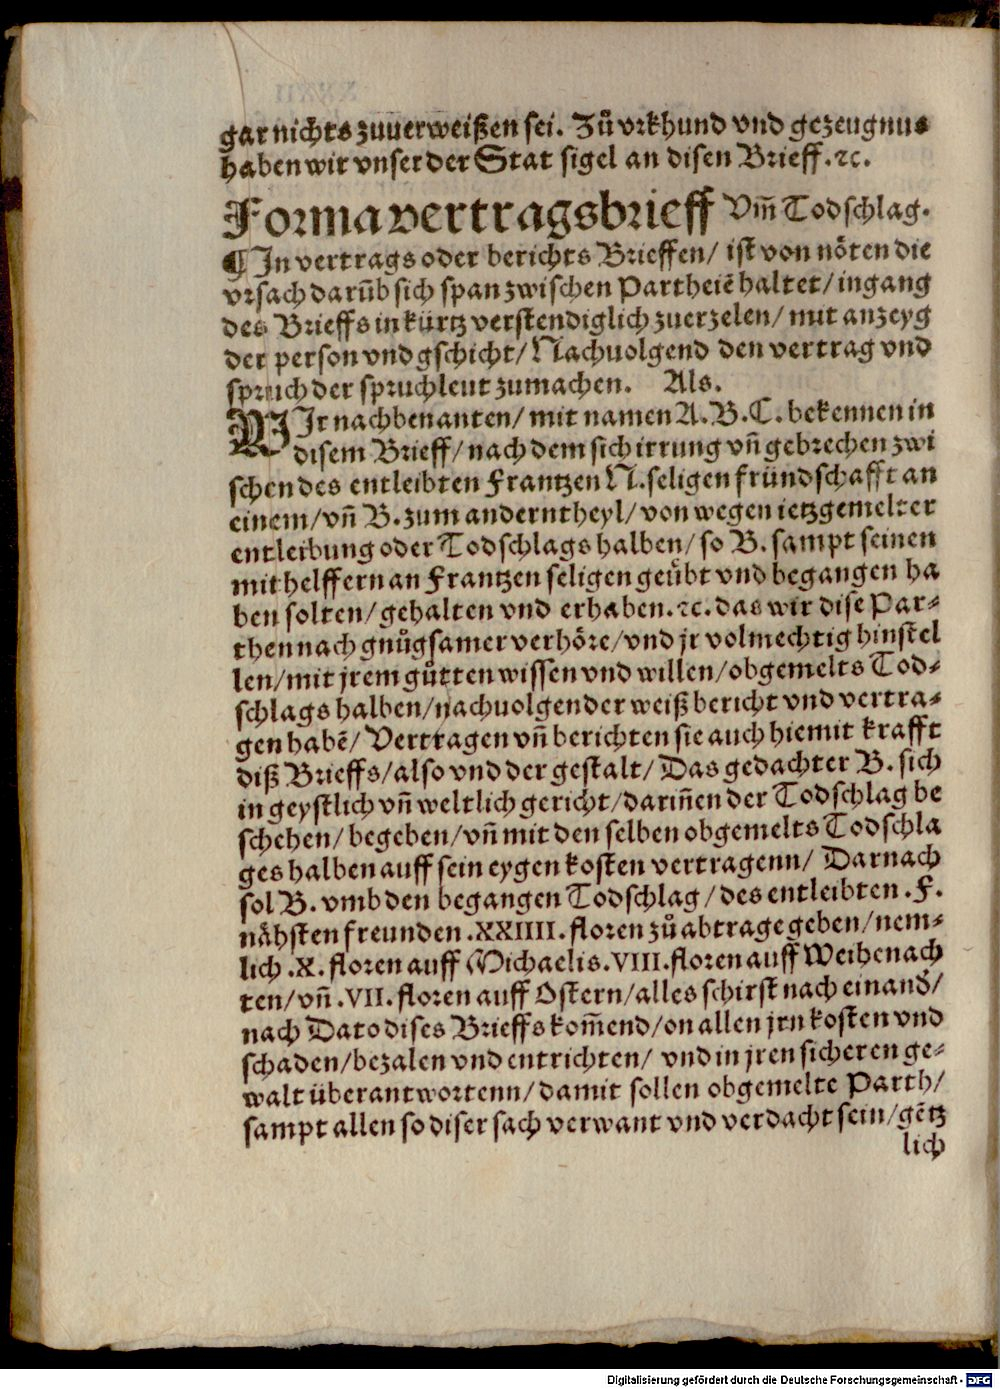 gar nichts zuuerweißen sei. Zů vrkhund vnd gezeugnus
haben wir vnser der Stat sigel an disen Brieff.ꝛc.
Forma vertragsbrieff Vm̃ Todschlag.
¶ In vertrags oder berichts Brieffen/ ist von nöten die
vrsach darũb sich span zwischen Partheiẽ haltet/ ingang
des Brieffs in kürtz verstendiglich zuerzelen/ mit anzeyg
der person vnd gschicht/ Nachuolgend den vertrag vnd
spruch der spruchleut zumachen. Als.
WIr nachbenanten/ mit namen A. B. C. bekennen in
disem Brieff/ nach dem sich irrung vñ gebrechen zwi
schen des entleibten Frantzen N. seligen fründschafft an
einem/ vñ B. zum anderntheyl/ von wegen ietzgemelter
entleibung oder Todschlags halben/ so B. sampt seinen
mithelffern an Frantzen seligen geübt vnd begangen ha
ben solten/ gehalten vnd erhaben.ꝛc. das wir dise Par-
then nach gnůgsamer verhöre/ vnd jr volmechtig hinstel
len/ mit jrem gůtten wissen vnd willen/ obgemelts Tod-
schlags halben/ nachuolgender weiß bericht vnd vertra-
gen habẽ/ Vertragen vñ berichten sie auch hiemit krafft
diß Brieffs/ also vnd der gestalt/ Das gedachter B. sich
in geystlich vñ weltlich gericht/ dariñen der Todschlag be
schehen/ begeben/ vñ mit den selben obgemelts Todschla
ges halben auff sein eygen kosten vertragenn/ Darnach
sol B. vmb den begangen Todschlag/ des entleibten .F.
nähsten freunden .XXIIII. floren zů abtrage geben/ nem-
lich .X. floren auff Michaelis .VIII. floren auff Weihenach
ten/ vñ .VII. floren auff Ostern/ alles schirst nach einand̾/
nach Dato dises Brieffs kom̃end/ on allen jrn kosten vnd
schaden/ bezalen vnd entrichten/ vnd in jren sicheren ge-
walt überantwortenn/ damit sollen obgemelte Parth/
sampt allen so diser sach verwant vnd verdacht sein/ gẽtz
lich
Digitalisierung gefördert durch die Deutsche Forschungsgemeinschaft - DFG